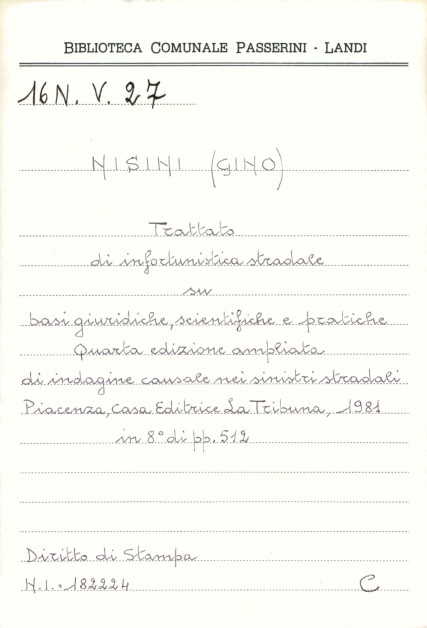 BIBLIOTECA COMUNALE PASSERINI - LANDI
16 N. V. 27
NISINI (GINO)
Trattato
di infortunistica stradale
su
basi giuridiche, scientifiche e pratiche
Quarta edizione ampliata
di indagine causale nei sinistri stradali
Piacenza, Casa Editrice La Tribuna, 1981
in 8° di pp. 512
Diritto di Stampa
N.I. = 182224 C